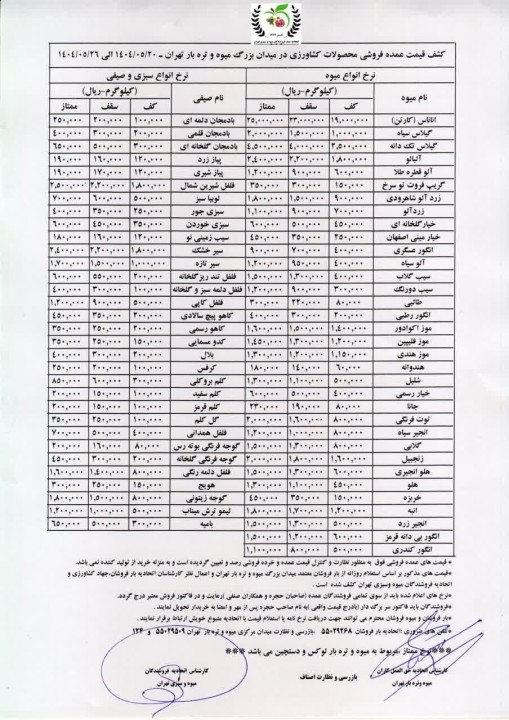 کشف قیمت عمده فروشی محصولات کشاورزی در میدان بزرگ میوه و تره بار تهران - ۱۴۰۴/۰۵/۲۰ الی ۱۴۰۴/۰۵/۲۶
نرخ انواع میوه نرخ انواع سبزی و صیفی
نام میوه (کیلوگرم-ریال) نام صیفی (کیلوگرم-ریال)
کف سقف ممتاز کف سقف ممتاز
آناناس (کارتن) ۱۹,۰۰۰,۰۰۰ ۲۳,۰۰۰,۰۰۰ ۲۵,۰۰۰,۰۰۰ بادمجان دلمه ای ۱۰۰,۰۰۰ ۲۰۰,۰۰۰ ۲۵۰,۰۰۰
گیلاس سیاه ۱,۰۰۰,۰۰۰ ۱,۵۰۰,۰۰۰ ۲,۰۰۰,۰۰۰ بادمجان قلمی ۲۰۰,۰۰۰ ۳۰۰,۰۰۰ ۴۰۰,۰۰۰
گیلاس تک دانه ۲,۵۰۰,۰۰۰ ۴,۰۰۰,۰۰۰ ۴,۵۰۰,۰۰۰ بادمجان گلخانه ای ۳۰۰,۰۰۰ ۵۰۰,۰۰۰ ۶۵۰,۰۰۰
آلبالو ۱,۸۰۰,۰۰۰ ۲,۲۰۰,۰۰۰ ۲,۴۰۰,۰۰۰ پیاز زرد ۱۲۰,۰۰۰ ۱۶۰,۰۰۰ ۱۹۰,۰۰۰
آلو قطره طلا ۶۰۰,۰۰۰ ۹۰۰,۰۰۰ ۱,۲۰۰,۰۰۰ پیاز شیری ۱۲۰,۰۰۰ ۱۷۰,۰۰۰ ۱۹۰,۰۰۰
گریپ فروت تو سرخ ۱۵۰,۰۰۰ ۳۰۰,۰۰۰ ۳۵۰,۰۰۰ فلفل شیرین شمال ۱,۸۰۰,۰۰۰ ۲,۲۰۰,۰۰۰ ۲,۵۰۰,۰۰۰
زرد آلو شاهرودی ۹۰۰,۰۰۰ ۱,۵۰۰,۰۰۰ ۱,۸۰۰,۰۰۰ لوبیا سبز ۵۰۰,۰۰۰ ۶۰۰,۰۰۰ ۷۰۰,۰۰۰
زردآلو ۷۰۰,۰۰۰ ۹۰۰,۰۰۰ ۱,۱۰۰,۰۰۰ سبزی جور ۲۵۰,۰۰۰ ۳۵۰,۰۰۰ ۴۰۰,۰۰۰
خیارگلخانه ای ۳۵۰,۰۰۰ ۴۵۰,۰۰۰ سبزی خوردن ۳۵۰,۰۰۰ ۴۵۰,۰۰۰ ۶۰۰,۰۰۰
خیار مینی اصفهان ۲۵۰,۰۰۰ ۳۵۰,۰۰۰ ۴۵۰,۰۰۰ سیب زمینی نو ۱۲۰,۰۰۰ ۱۶۰,۰۰۰ ۱۸۰,۰۰۰
انگور عسگری ۴۰۰,۰۰۰ ۷۰۰,۰۰۰ ۹۰۰,۰۰۰ سیر خشک ۱,۸۰۰,۰۰۰ ۲,۲۰۰,۰۰۰ ۲,۴۰۰,۰۰۰
آلو سیاه ۴۰۰,۰۰۰ ۹۵۰,۰۰۰ ۱,۲۰۰,۰۰۰ سیر تازه ۱,۰۰۰,۰۰۰ ۱,۵۰۰,۰۰۰ ۱,۷۰۰,۰۰۰
سیب گلاب ۵۰۰,۰۰۰ ۱,۳۰۰,۰۰۰ ۱,۵۰۰,۰۰۰ فلفل تند ریزگلخانه ۲۰۰,۰۰۰ ۵۵۰,۰۰۰ ۶۰۰,۰۰۰
سیب دورنگ ۳۰۰,۰۰۰ ۶۰۰,۰۰۰ فلفل دلمه سبز و گلخانه ۱۰۰,۰۰۰ ۳۰۰,۰۰۰ ۴۰۰,۰۰۰
طالبی ۸۰,۰۰۰ ۲۲۰,۰۰۰ ۳۰۰,۰۰۰ فلفل کاپی ۵۰۰,۰۰۰ ۹۰۰,۰۰۰ ۱,۲۰۰,۰۰۰
انگور رطبی ۲۰۰,۰۰۰ ۳۰۰,۰۰۰ ۴۰۰,۰۰۰ کاهو پیچ سالادی ۲۰۰,۰۰۰ ۳۵۰,۰۰۰
موز اکوادور ۱,۴۰۰,۰۰۰ ۱,۵۰۰,۰۰۰ ۱,۶۰۰,۰۰۰ کاهو رسمی ۲۰۰,۰۰۰ ۲۵۰,۰۰۰ ۳۵۰,۰۰۰
موز فلیپین ۱,۲۰۰,۰۰۰ ۱,۳۰۰,۰۰۰ ۱,۴۵۰,۰۰۰ کدو مسمایی ۱۵۰,۰۰۰ ۲۵۰,۰۰۰ ۳۵۰,۰۰۰
موز هندی ۱,۱۵۰,۰۰۰ ۱,۲۰۰,۰۰۰ ۱,۳۰۰,۰۰۰ بلال ۲۰۰,۰۰۰ ۳۰۰,۰۰۰ ۴۰۰,۰۰۰
هندوانه ۶۰,۰۰۰ ۱۴۰,۰۰۰ ۱۸۰,۰۰۰ کرفس ۱۰۰,۰۰۰ ۲۵۰,۰۰۰
شلیل ۵۰۰,۰۰۰ ۱,۱۰۰,۰۰۰ ۱,۳۰۰,۰۰۰ کلم بروکلی ۳۰۰,۰۰۰ ۶۰۰,۰۰۰ ۸۵۰,۰۰۰
خیار رسمی ۲۰۰,۰۰۰ ۴۰۰,۰۰۰ ۶۰۰,۰۰۰ کلم سفید ۱۰۰,۰۰۰ ۱۵۰,۰۰۰ ۲۰۰,۰۰۰
جانا ۸۰,۰۰۰ ۱۹۰,۰۰۰ ۲۳۰,۰۰۰ کلم قرمز ۱۰۰,۰۰۰ ۱۵۰,۰۰۰ ۲۰۰,۰۰۰
توت فرنگی ۸۰۰,۰۰۰ ۱,۶۰۰,۰۰۰ ۲,۰۰۰,۰۰۰ گل کلم ۱۰۰,۰۰۰ ۲۵۰,۰۰۰ ۳۵۰,۰۰۰
انجیر سیاه ۵۰۰,۰۰۰ ۱,۰۰۰,۰۰۰ ۱,۲۰۰,۰۰۰ فلفل همدانی ۴۰۰,۰۰۰ ۵۰۰,۰۰۰ ۷۰۰,۰۰۰
گلابی ۸۰۰,۰۰۰ ۱,۳۰۰,۰۰۰ ۱,۵۰۰,۰۰۰ گوجه فرنگی بوته رس ۸۰,۰۰۰ ۱۶۰,۰۰۰ ۲۰۰,۰۰۰
زنجبیل ۱,۶۰۰,۰۰۰ ۱,۸۰۰,۰۰۰ ۲,۰۰۰,۰۰۰ گوجه فرنگی گلخانه ۲۰۰,۰۰۰ ۳۰۰,۰۰۰ ۴۵۰,۰۰۰
هلو انجیری ۶۰۰,۰۰۰ ۱,۳۰۰,۰۰۰ ۱,۵۰۰,۰۰۰ فلفل دلمه رنگی ۸۰۰,۰۰۰ ۱,۴۰۰,۰۰۰ ۱,۶۰۰,۰۰۰
هلو ۴۵۰,۰۰۰ ۱,۱۰۰,۰۰۰ ۱,۳۰۰,۰۰۰ هویج ۱۵۰,۰۰۰ ۲۵۰,۰۰۰ ۳۰۰,۰۰۰
خربزه ۱۵۰,۰۰۰ ۳۵۰,۰۰۰ ۴۵۰,۰۰۰ گوجه زیتونی ۸۰۰,۰۰۰ ۱,۵۰۰,۰۰۰ ۱,۸۰۰,۰۰۰
انبه ۱,۲۰۰,۰۰۰ ۱,۷۰۰,۰۰۰ ۱,۸۰۰,۰۰۰ لیمو ترش میناب ۵۰۰,۰۰۰ ۱,۰۰۰,۰۰۰ ۱,۲۰۰,۰۰۰
انجیر زرد ۵۰۰,۰۰۰ ۱,۳۰۰,۰۰۰ ۱,۵۰۰,۰۰۰ بامیه ۳۰۰,۰۰۰ ۵۰۰,۰۰۰ ۶۵۰,۰۰۰
انگور بی دانه قرمز ۶۰۰,۰۰۰ ۱,۲۰۰,۰۰۰ ۱,۵۰۰,۰۰۰
انگور کندری ۵۰۰,۰۰۰ ۸۰۰,۰۰۰ ۱,۱۰۰,۰۰۰
قیمت های عمده فروشی فوق به منظور نظارت و کنترل قیمت عمده و خرده فروشی رصد و تعیین گردیده است و به منزله خرید از تولید کننده نمی باشد.
قیمت های مذکور بر اساس استعلام روزانه از بار فروشان معتمد میدان بزرگ میوه و تره بار تهران و اعمال نظر کارشناسان اتحادیه بار فروشان،جهاد کشاورزی و
اتحادیه فروشندگان میوه وسبزی تهران کشف شده است .
نرخ های اعلام شده باید از سوی تمامی فروشندگان عمده (صاحبان حجره و همکاران صنفی )رعایت و در فاکتور فروش معتبر درج گردد.
فروشندگان باید فاکتور سر برگه دار (بادرج قیمت واقعی )به نام صاحب حجره پس از مهر و امضا به خریدار تحویل نمایند .
بار فروشان و میوه فروشان محترم می توانند جهت دریافت نرخ نامه یا استعلام قیمت با اتحادیه متبوع خویش ارتباط برقرار نمایند .
تلفن های ضروری :اتحادیه بار فروشان ۵۵۰۲۹۲۶۸ بازرسی و نظارت میدان مرکزی میوه و تره بار تهران ۵۵۰۲۹۵۰۹ و ۱۲۴
***نرخ ممتاز ،مربوط به میوه و تره بار لوکس و دستچین می باشد ***
کارشناس اتحادیه حق العمل کاران بازرسی و نظارت اصناف کارشناس اتحادیه فروشندگان
میوه و تره بار تهران میوه و سبزی تهران